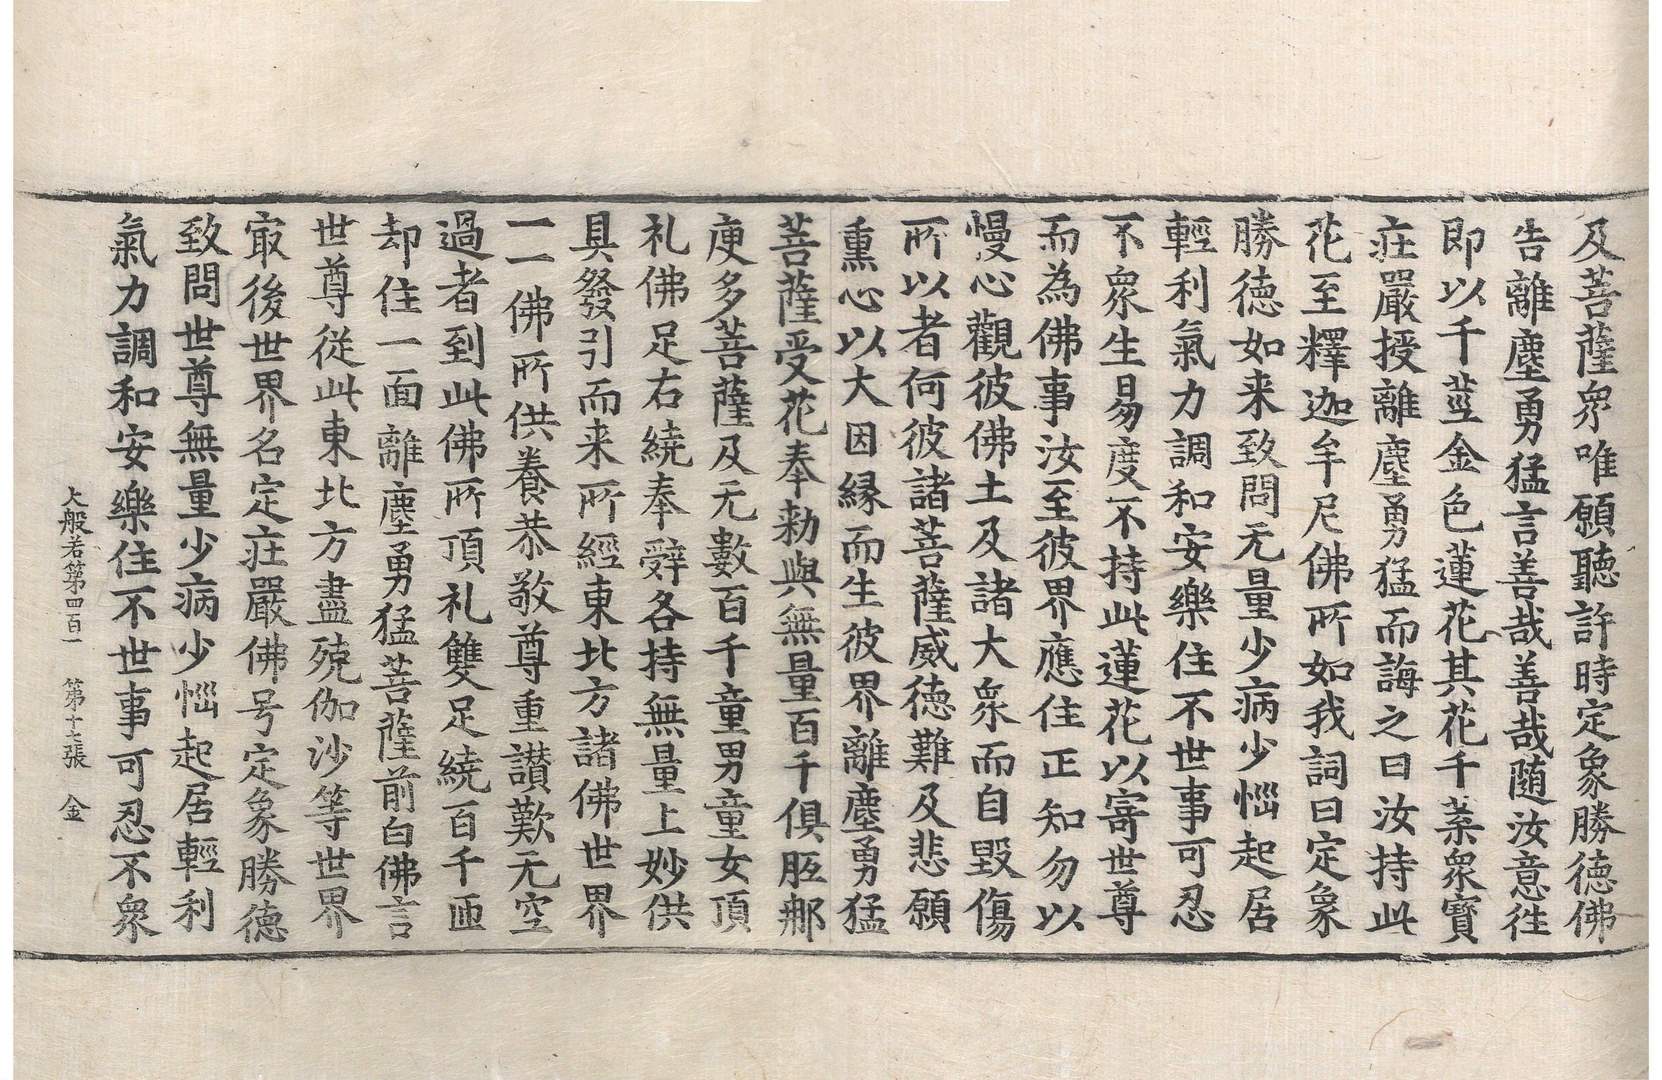 及菩薩衆唯願聽許時定象勝德佛
告離塵勇猛言善哉善哉随汝意往
即以千莖金色蓮花其花千葉衆寶
莊嚴授離塵勇猛而誨之曰汝持此
花至釋迦牟尼佛所如我詞曰定象
勝德如来致問无量少病少惱起居
輕利氣力調和安樂住不世事可忍
不衆生易度不持此蓮花以寄世尊
而為佛事汝至彼界應住正知勿以
慢心觀彼佛土及諸大衆而自毀傷
所以者何彼諸菩薩威德難及悲願
熏心以大因緣而生彼界離塵勇猛
菩薩受花奉勑與無量百千俱胝那
庾多菩薩及无數百千童男童女頂
礼佛足右繞奉辤各持無量上妙供
具發引而来所經東北方諸佛世界
一一佛所供養恭敬尊重讃歎无空
過者到此佛所頂礼雙足繞百千匝
却住一面離塵勇猛菩薩前白佛言
世尊從此東北方盡殑伽沙等世界
㝡後世界名定莊嚴佛号定象勝德
致問世尊無量少病少惱起居輕利
氣力調和安樂住不世事可忍不衆
大般若第四百一 第十七張 金